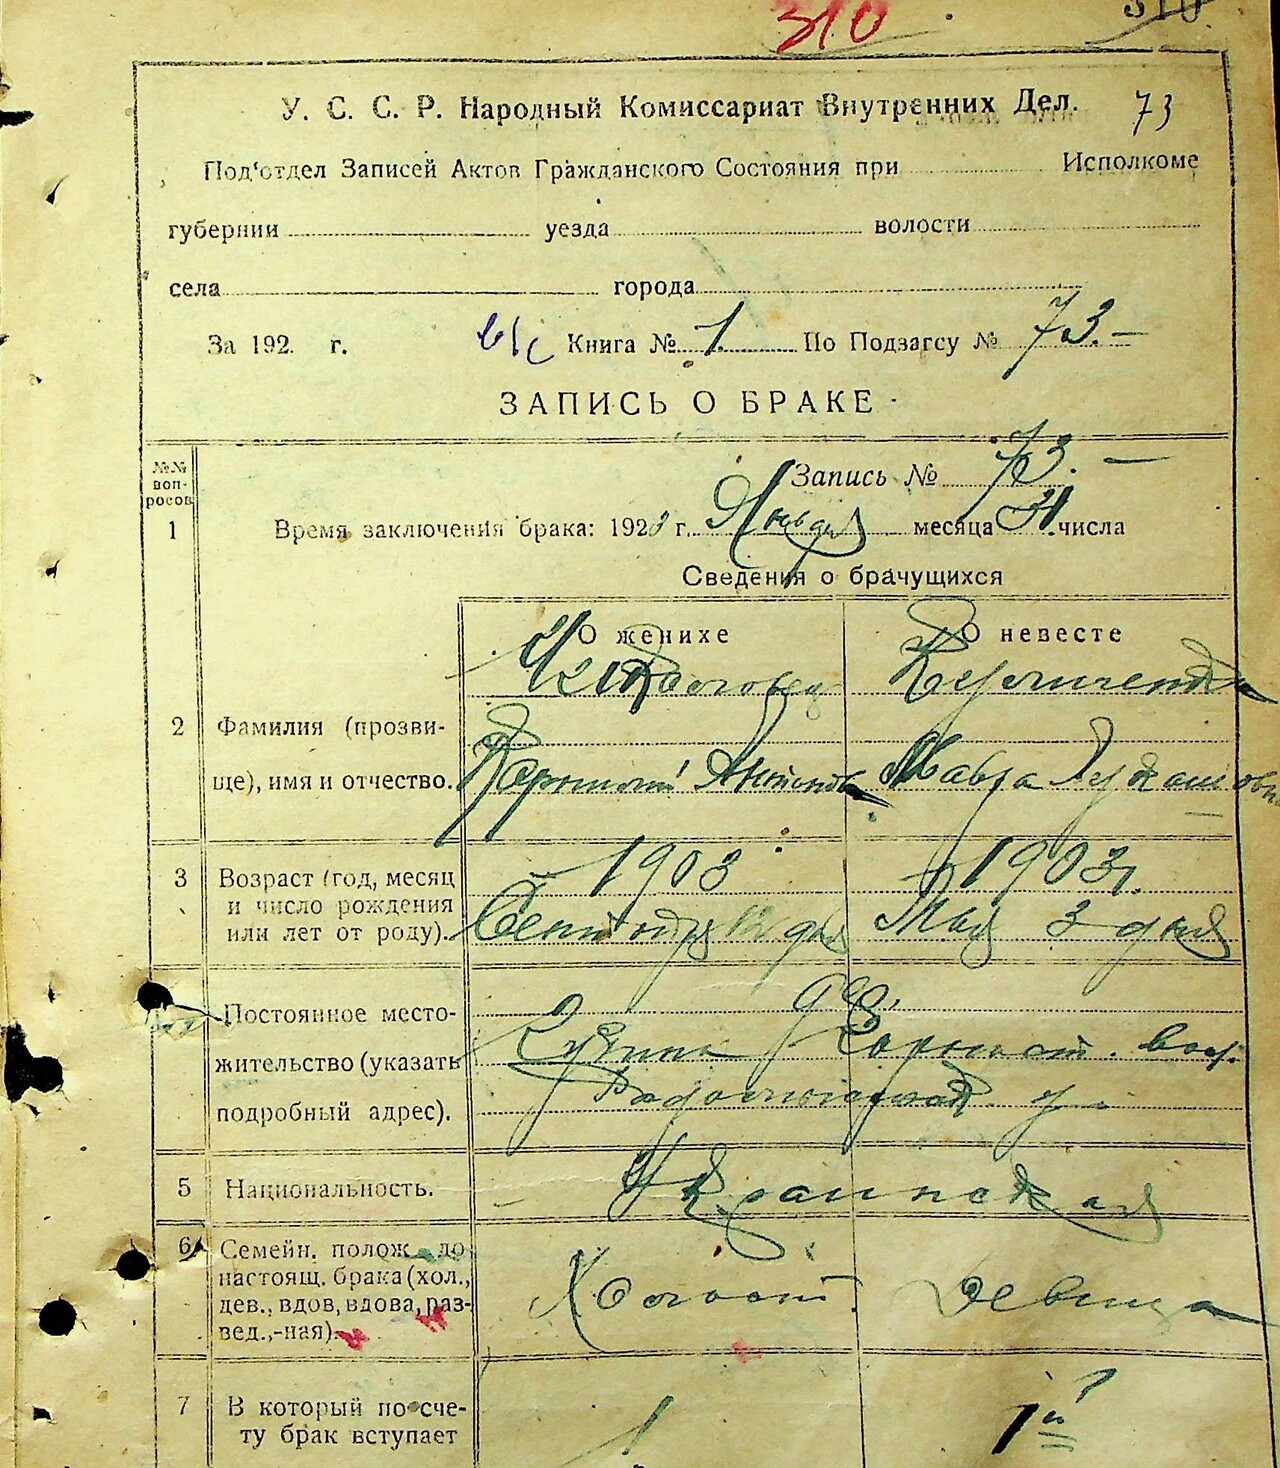 310
310
У. С. С. Р. Народный Комиссариат Внутренних Дел. 73
Под'отдел Записей Актов Гражданского Состояния при Исполкоме
губернии уезда волости
села города
За 192 г. Книга № 1. По Подзагсу № 73.—
ЗАПИСЬ О БРАКЕ
№№ воп-
росов
Запись № 73. —
1 Время заключения брака: 1923 г. Января месяца 31 числа
Сведения о брачущихся
О женихе О невесте
2 Фамилия (прозви-
ще), имя и отчество. Мавра
3 Возраст (год, месяц 1903 1903 г.
и число рождения
или лет от роду). Сентября 12 дня Мая 3 дня
Постоянное место-
жительство (указать
подробный адрес).
5 Национальность. Украинская
6 Семейн. полож. до
настоящ. брака (хол., Холост. Девица
дев., вдов, вдова, раз-
вед.,-ная).
7 В который по сче- 1 1й
ту брак вступает